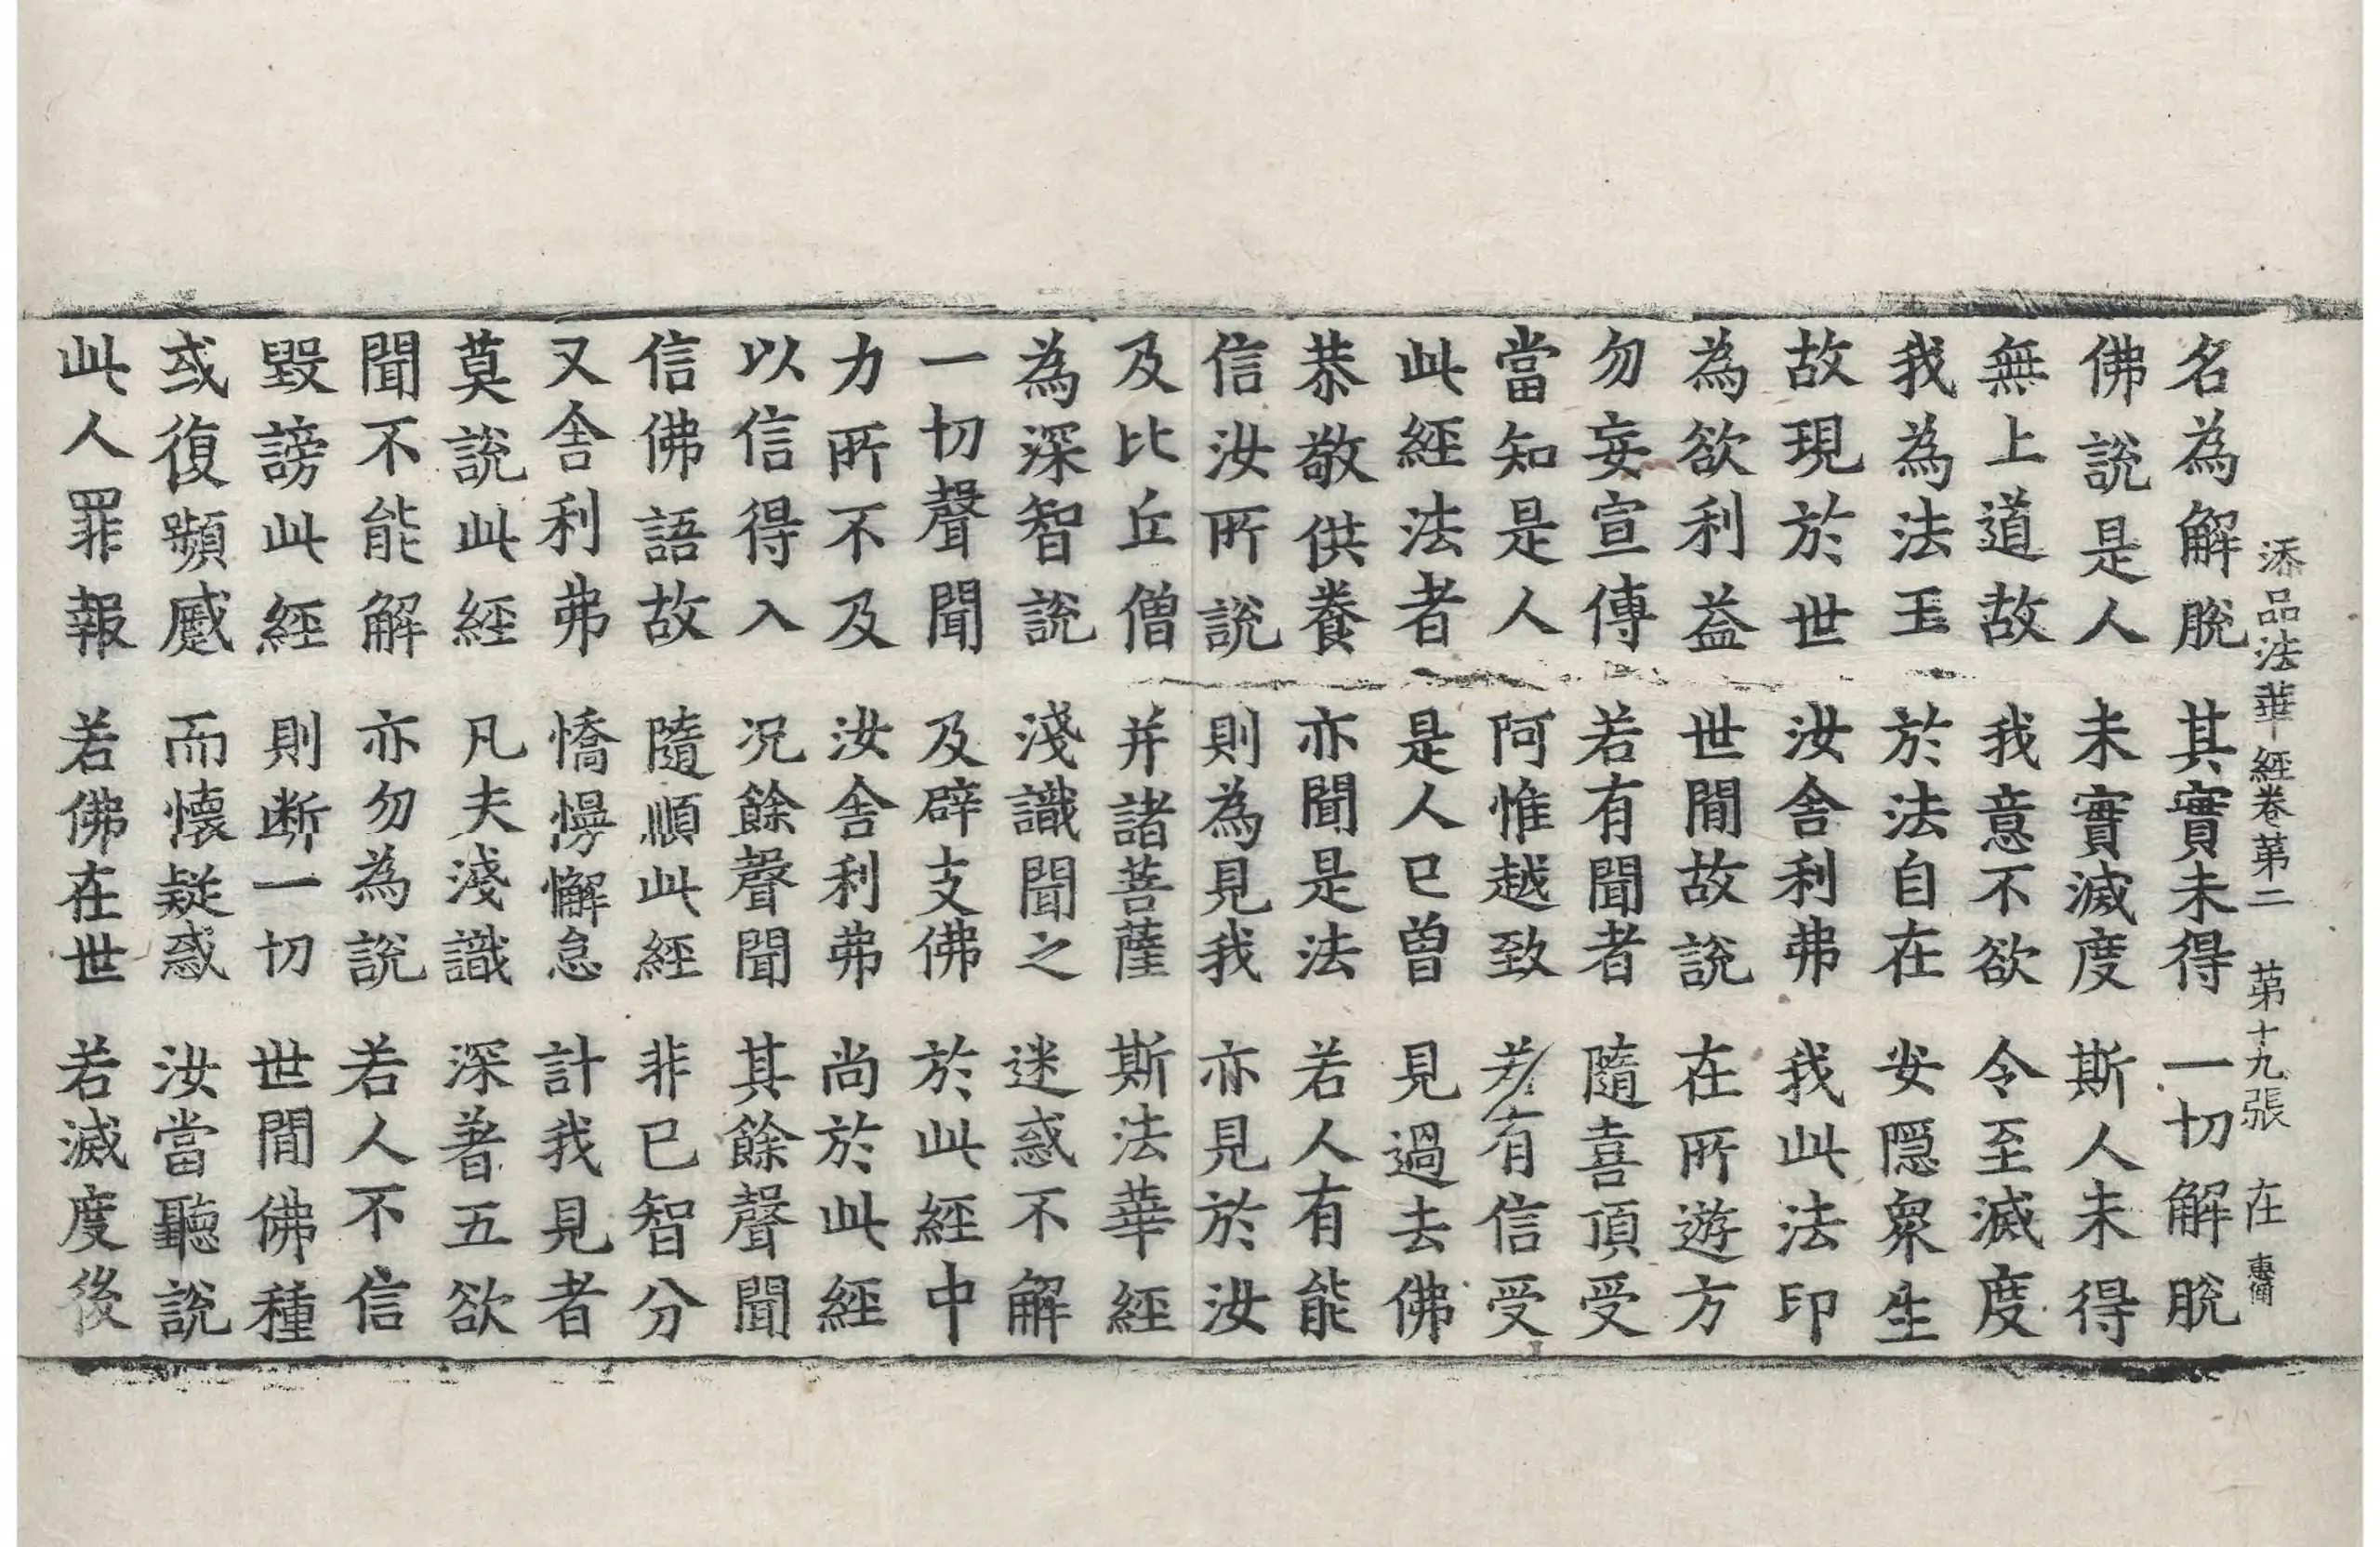 添品法華經卷第二　第十九張　在　惠蘭
名為解脫　其實未得　一切解脫
佛說是人　未實滅度　斯人未得
無上道故　我意不欲　令至滅度
我為法王　於法自在　安隱衆生
故現於世　汝舍利弗　我此法印
為欲利益　世間故說　在所遊方
勿妄宣傳　若有聞者　隨喜頂受
當知是人　阿惟越致　若有信受
此經法者　是人已曾　見過去佛
恭敬供養　亦聞是法　若人有能
信汝所說　則為見我　亦見於汝
及比丘僧　并諸菩薩　斯法華經
為深智說　淺識聞之　迷惑不解
一切聲聞　及辟支佛　於此經中
力所不及　汝舍利弗　尚於此經
以信得入　況餘聲聞　其餘聲聞
信佛語故　隨順此經　非已智分
又舍利弗　憍慢懈怠　計我見者
莫說此經　凡夫淺識　深著五欲
聞不能解　亦勿為說　若人不信
毀謗此經　則断一切　世間佛種
或復顰蹙　而懷疑惑　汝當聽說
此人罪報　若佛在世　若滅度後